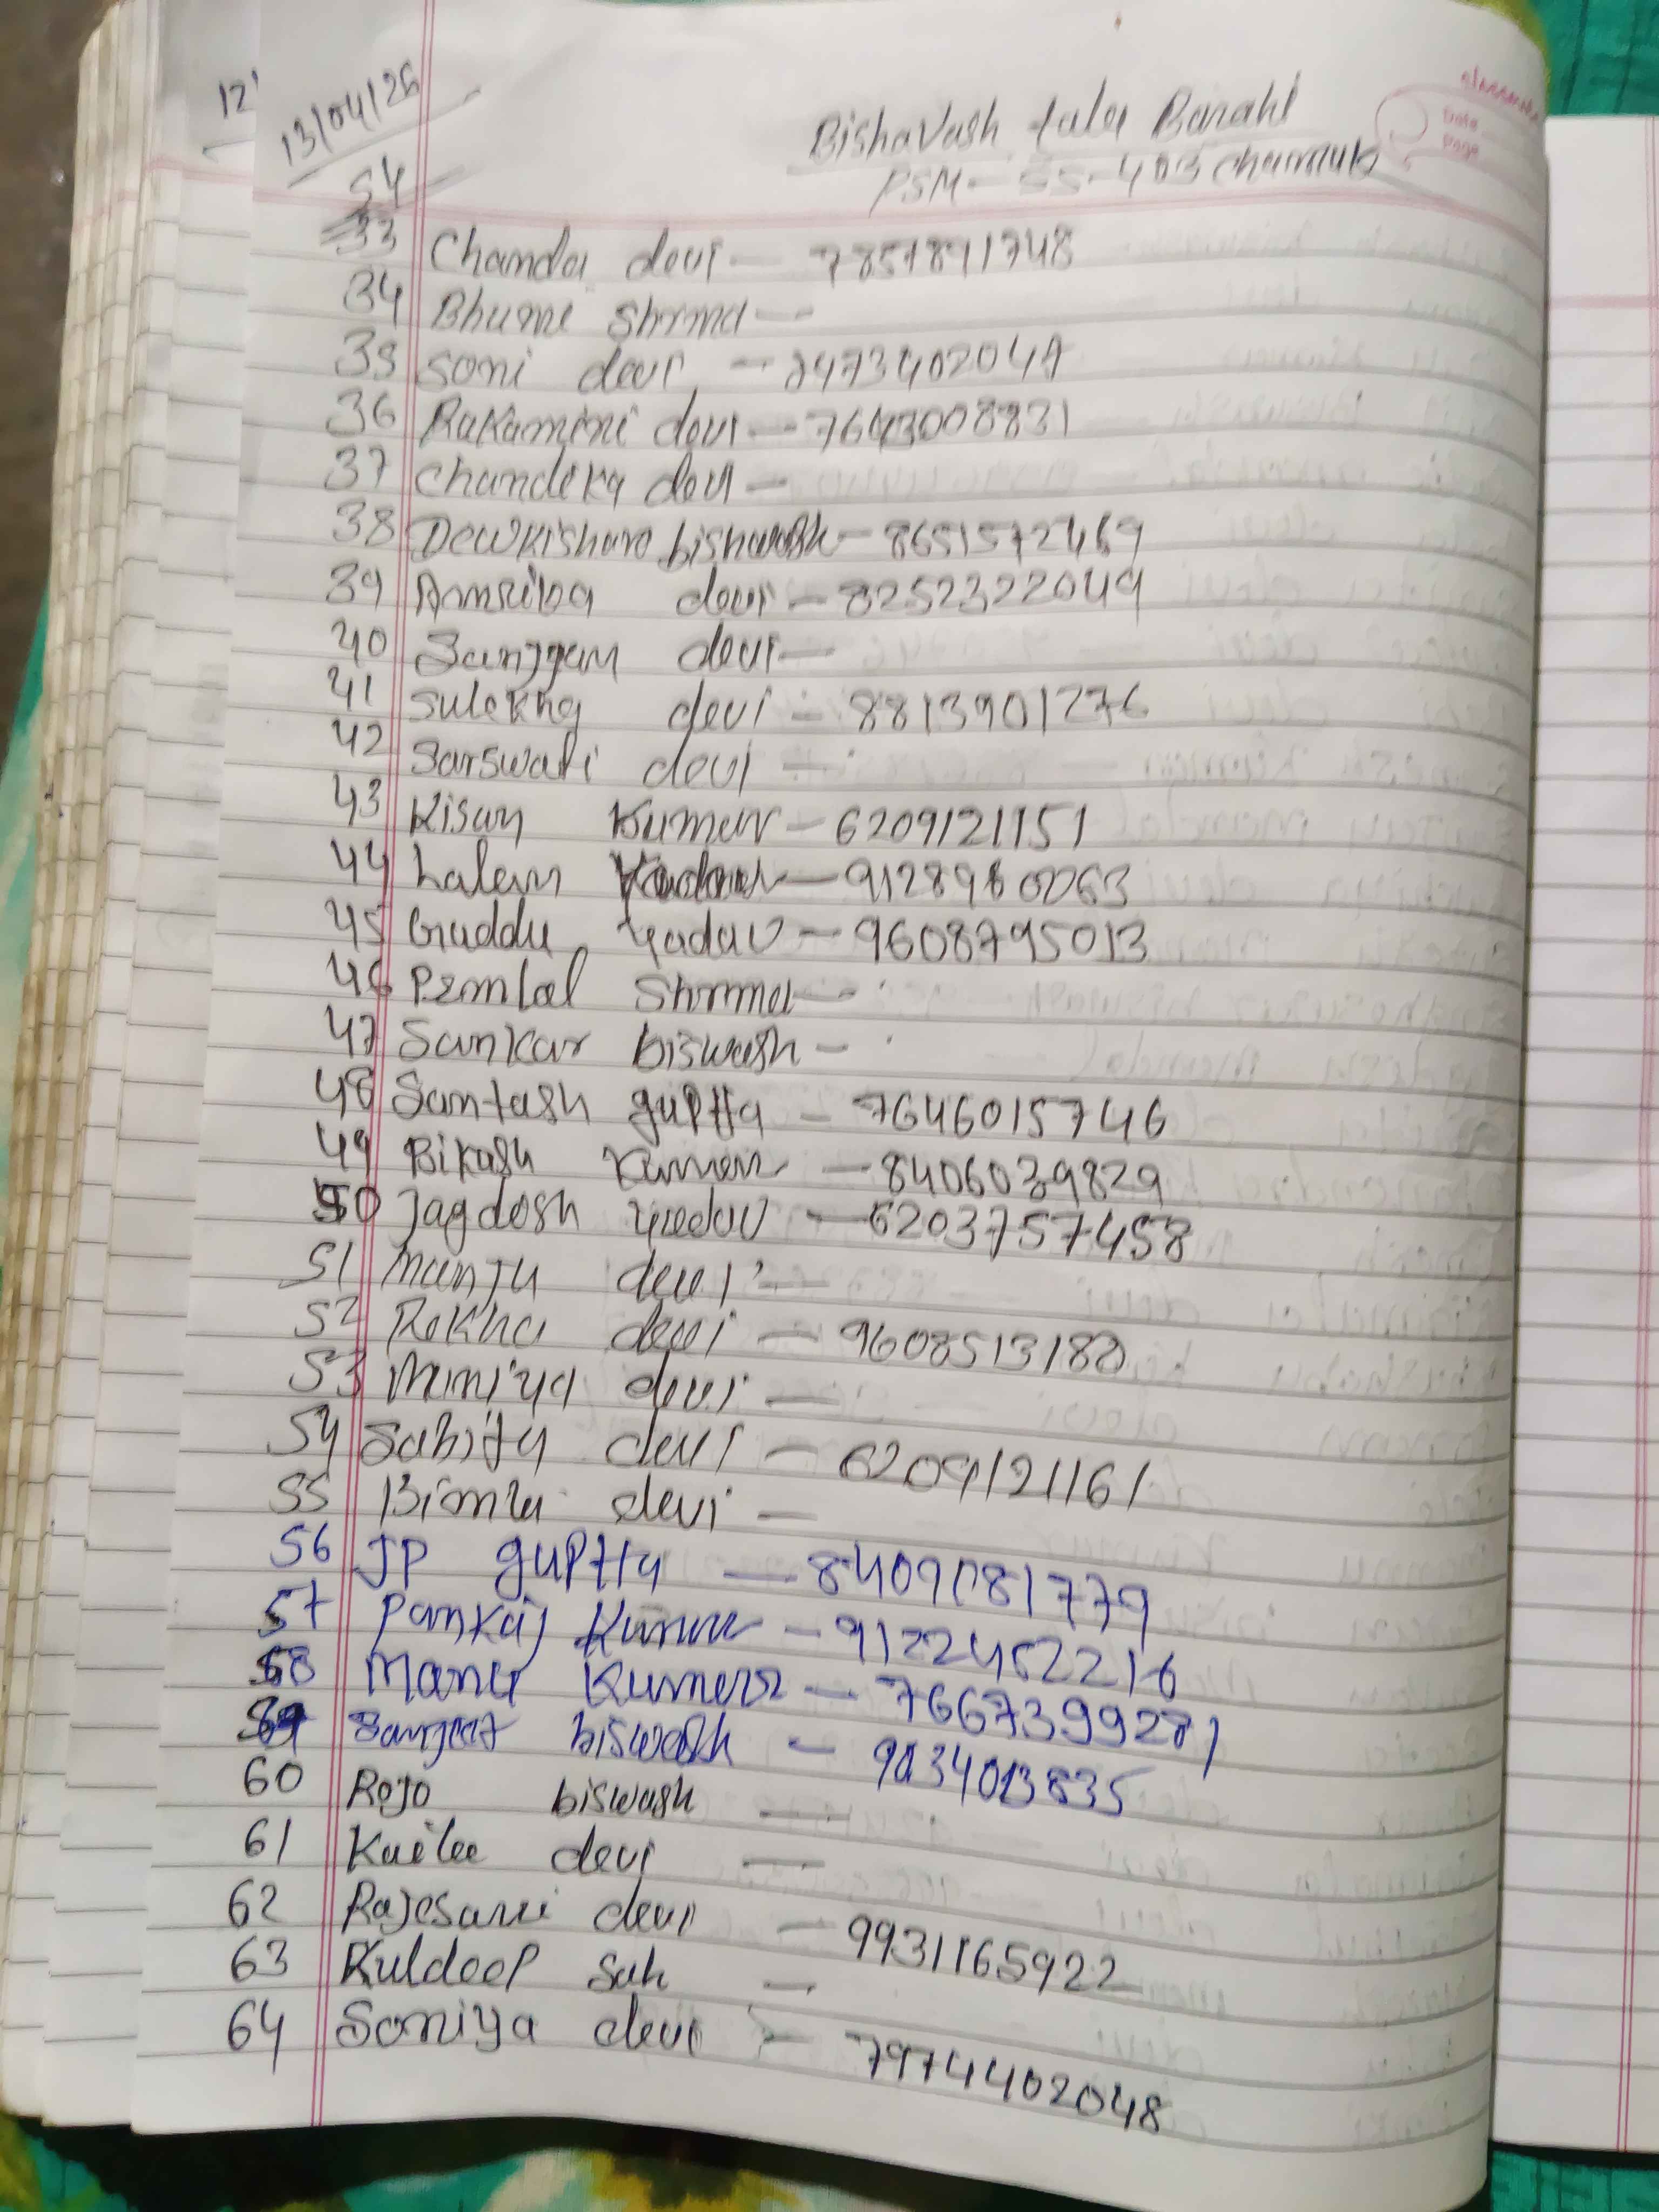 12
13/04/26
classmate
Date
Page
BishaVash tala Barahi
PSM - SS-403
54
33 Chanda devi — 7857891748
34 Bhumi Shrma —
35 Soni devi — 7473402047
36 Rakamini devi — 7643008831
37 Chandeka devi —
38 Dewkishuro bishwash — 8651572469
39 devi — 8252322049
40 devi —
41 Sulekha devi — 8813901276
42 Sarswati devi —
43 Kisan Kumar — 6209121151
44 Lalan Yadav —
45 Guddu Yadav — 9608795013
46 Premlal Shrma —
47 Sankar biswash —
48 Santash guptta — 7646015746
49 Bikash Kumar — 8406039829
50 Jagdesh yadav — 6203757458
51 Manju devi —
52 Rekha devi — 9608513180
53 Muniya devi —
54 Sabita devi — 6209121161
55 Bimla devi —
56 JP guptta — 8409081779
57 Pankaj Kumar — 9122452216
58 Kumar — 7667399281
59 biswash —
60 Rojo biswash —
61 Kaila devi —
62 Rajesari devi — 9931165922
63 Kuldeep Sah —
64 Soniya devi — 7974402048